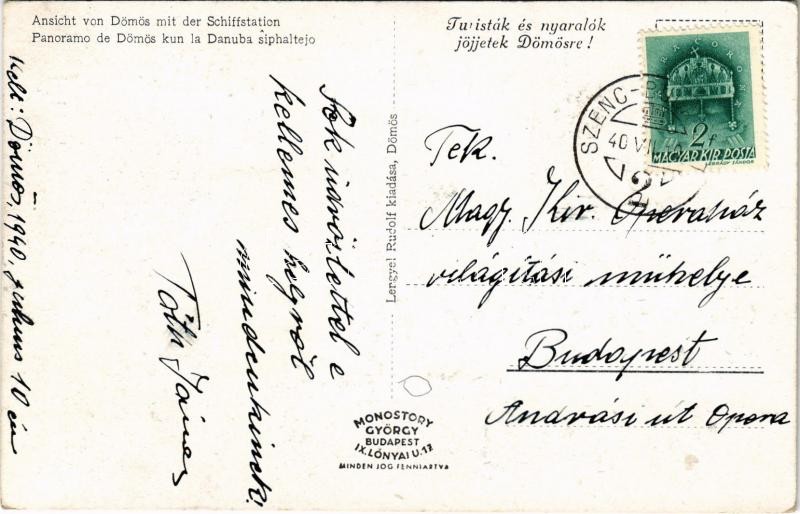 Ansicht von Dömös mit der Schiffstation
Panoramo de Dömös kun la Danuba ŝiphaltejo
Turisták és nyaralók
jöjjetek Dömösre!
Kelt: Dömös, 1940, julius 10 én
Sok üdvözlettel e
kellemes helyről
mindenkinek!
Tóth János
Lengyel Rudolf kiadása, Dömös
MAGYAR KIR. POSTA
2f
SZENC-
40 VII.
Tek.
Magy. Kir. Operaház
világítási műhelye
Budapest
Andrási út Opera
MONOSTORY
GYÖRGY
BUDAPEST
IX. LÓNYAI U. 12
MINDEN JOG FENNTARTVA